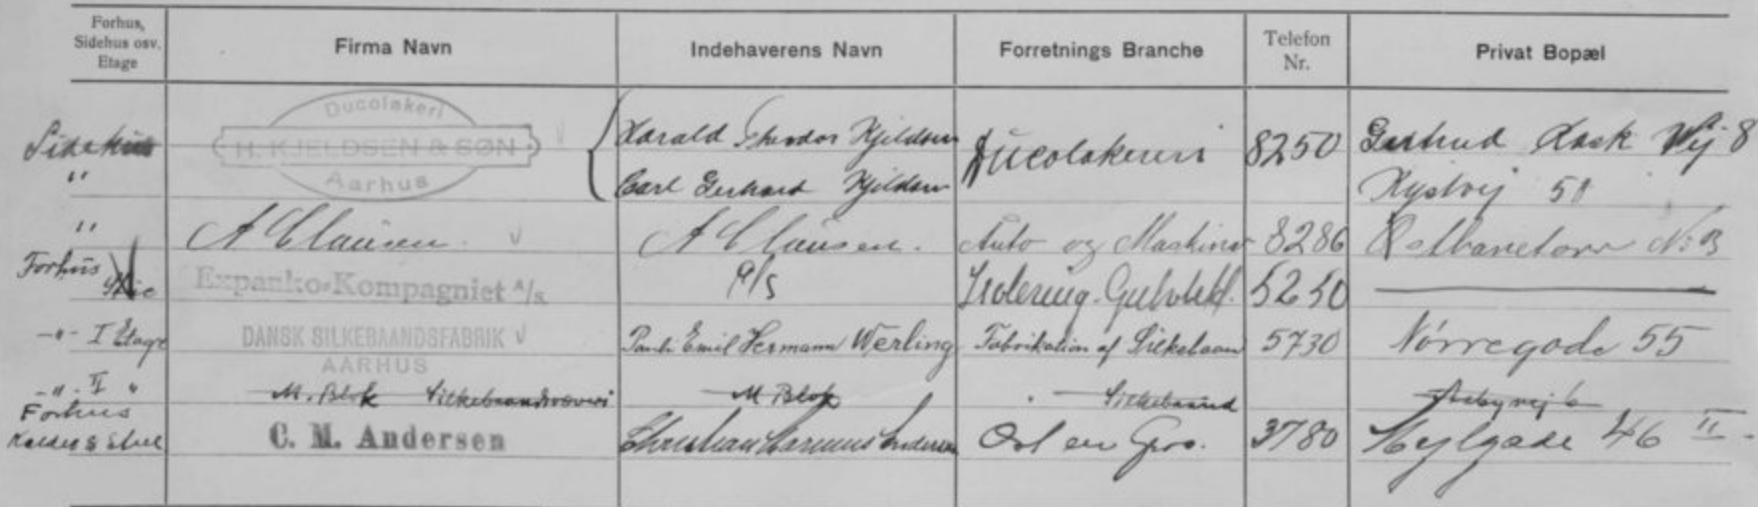 Forhus, Sidehus osv. Etage Firma Navn Indehaverens Navn Forretnings Branche Telefon Nr. Privat Bopæl
Ducolakeri
Sidehus H. KJELDSEN & SØN Harald Theodor Kjeldsen Ducolakereri 8250 Gertrud Rask Vej 8
" Aarhus Carl Gerhard Kjeldsen Kystvej 51
" A Clausen. A Clausen. Auto og Maskiner 8286 Østbanetorv No 3
Forhus Stue Expanko-Kompagniet A/s A/S Isolering-Gulvbekl. 5250
-"- I Etage DANSK SILKEBAANDSFABRIK Emil Hermann Werling Fabrikation af Silkebaand 5730 Nørregade 55
AARHUS
-"- II " M. Blok Silkebaandsvæveri M Blok Silkebaand Aabyvej 6
Forhus
Kælder & Stue C. M. Andersen Christian Marinus Andersen Ost en Gros. 3780 Mejlgade 46 II